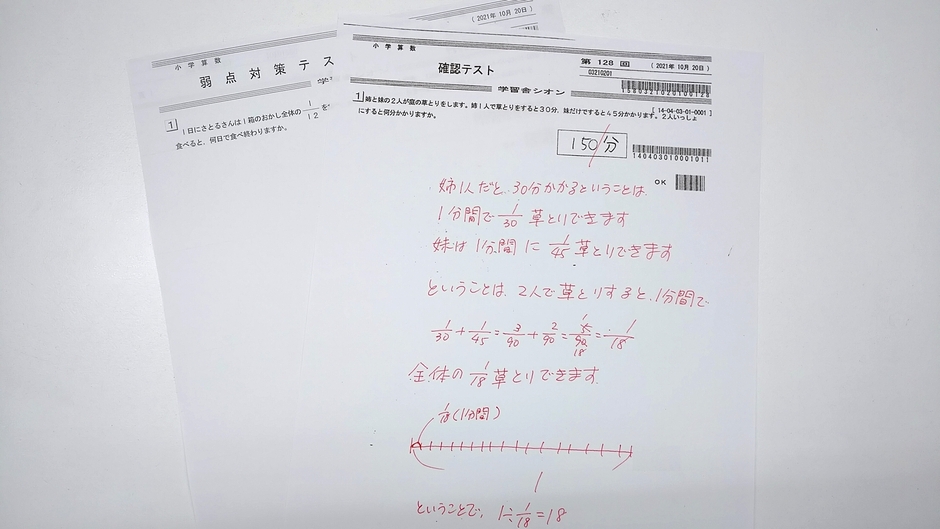 小学算数
(2021年 10月 20日)
弱点対策テス
1 1日にさとるさんは1箱のおかし全体の1/12を
食べると、何日で食べ終わりますか。
小学算数
確認テスト
第 128 回
(2021年 10月 20日)
03210201
学習舎シオン
1580321020100128
1 姉と妹の2人が庭の草とりをします。姉1人で草とりをすると30分、妹だけですると45分かかります。2人いっしょ
にすると何分かかりますか。
[ 14-04-03-01-0001 ]
150分
1404030100001011
OK
姉1人だと、30分かかるということは、
1分間で 1/30 草とりできます
妹は1分間に 1/45 草とりできます
ということは、2人で草とりすると、1分間で
1/30 + 1/45 = 3/90 + 2/90 = 5/90 = 1/18
1
18
全体の 1/18 草とりできます。
1/18 (1分間)
1
ということで、1÷1/18=18